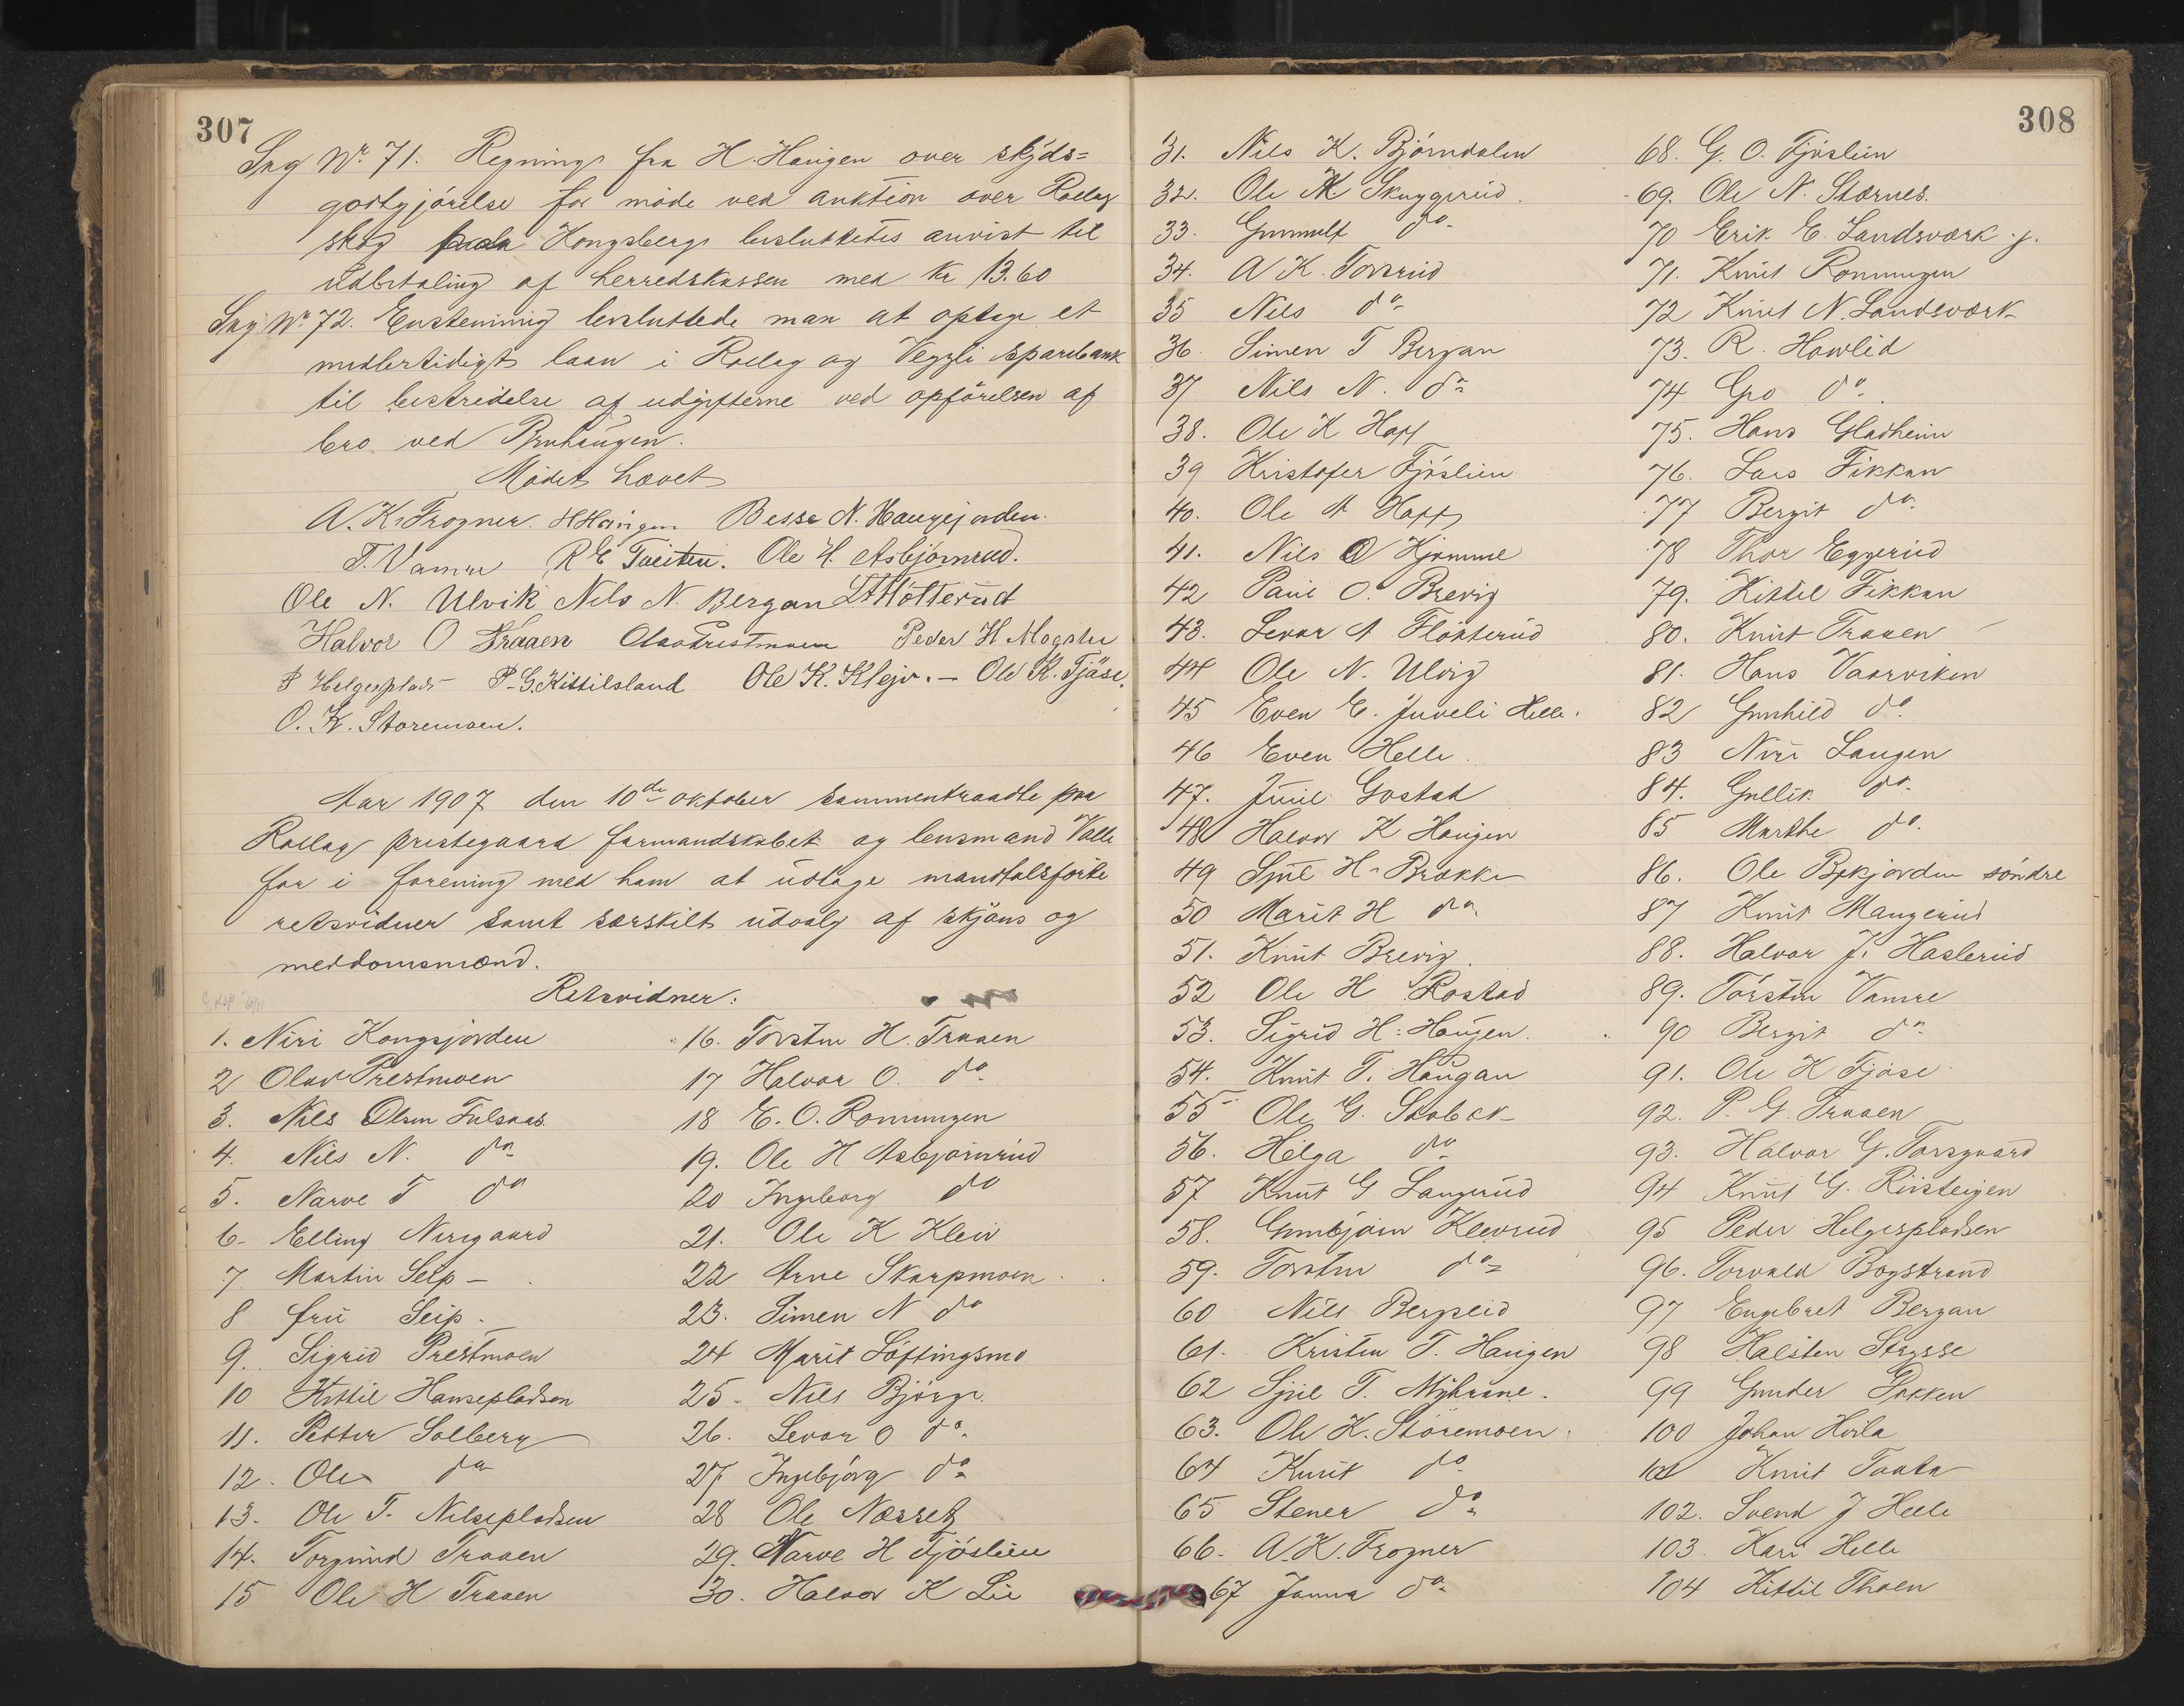 307
Sag No 71. Regning fra H. Haugen over skyds=
godtgjörelse for möde ved auktion over Rollag
skog paa Kongsberg besluttedes anvist til
udbetaling af herredskassen med kr 13.60
Sag No 72. Enstemmig besluttede man at optage et
midlertidigt laan i Rollag og Veggli sparebank
til bestridelse af udgifterne ved opförelsen af
bro ved Bruhaugen.
Mödet hævet
A. K. Frogner. H Haugen Besse N. Haugejorden.
T. Vamre R E Tveiten. Ole H. Asbjørnrud.
Ole N. Ulvik Nils N. Bergan
Halvor O Traaen Olav Prestmoen Peder H Mogstu
P Helgeplads P. G. Kittilsland Ole K. Kleiv. — Ole K. Fjöse.
O. K. Storemoen.
Aar 1907 den 10de oktober sammentraadte paa
Rollag prestegaard formandskabet og lensmand Valle
for i forening med ham at udtage mandtalsförte
retsvidner samt særskilt udvalg af skjöns og
meddomsmænd.
Retsvidner:
1. Niri Kongsjorden
2 Olav Prestmoen
3. Nils Olsen Fulsaas
4. Nils N. do
5. Narve T do
6- Elling Nirigaard
7 Martin Seip —
8 fru Seip -
9. Sigrid Prestmoen
10 Kittil Hansepladsen
11. Petter Solberg
12. Ole do
13. Ole T. Nilsepladsen
14. Torgund Traaen
15 Ole H Traaen
16. Torsten H. Traaen
17 Halvor O. do
18 E. O. Ronningen
19. Ole H Asbjørnrud
20 Ingeborg do
21. Ole K Kleiv
22 Arne Skarpmoen
23. Simen N do
24 Marit Löftingsmo
25- Nils Björge
26. Levor O do
27 Ingebjörg do
28 Ole Næsset
29. Narve H Fjöslien
30. Halvor K Lie
308
31. Nils K. Björndalen
32. Ole K. Skuggerud
33. Gunnulf do
34. A K. Torsrud
35 Nils do
36 Simen T Bergan
37 Nils N. do
38. Ole K Hoff
39 Kristofer Fjöslien
40. Ole A Hoff
41. Nils O Kjomme
42 Paul O. Brevig
43. Levor A Flöxterud
44 Ole N. Ulvig
45 Even E. Juveli Helle.
46 Even Helle
47. Juul Gostad
48 Halvor K Haugen
49 Sjul H. Brokke
50 Marit H do
51. Knut Brevig.
52 Ole H Rostad
53. Sigrid H. Haugen.
54. Knut T. Haugan
55 Ole G. Skobek
56. Helga do
57 Knut G Laugerud
58. Gunbjörn Kleivrud
59. Torsten do
60 Nils Bergseid
61. Kristen T. Haugen
62 Sjul T. Myhrane.
63. Ole K. Storemoen.
64 Knut do
65 Stener do
66. A. K. Frogner
67 Janna do
68. G. O. Fjöslien
69. Ole N. Stærnes.
70 Erik E. Landsværk j.
71. Knut Ronningen
72 Knut N. Landsværk
73. R. Hovlid
74 Gro do
75. Hans Gladheim
76. Lars Fikkan
77 Bergit do
78 Thor Eggerud
79. Kittil Fikkan
80. Knut Traaen
81. Hans Vaarviken
82 Gunhild do
83 Niri Laugen
84. Gullik do
85 Marthe do.
86. Ole Bækjorden söndre
87 Knut Maugerud
88. Halvor J. Haslerud
89. Torsten Vamre
90 Bergit do
91. Ole K Fjöse
92. P. G. Traaen
93. Halvor G. Torsgaard
94 Knut G. Ruisteigen
95 Peder Helgespladsen
96. Torvald Bogstrand
97 Engebret Bergan
98 Halsten Strysse
99 Gunder Bakken
100 Johan Hvila
101 Knut Traaen
102. Svend J Helle
103. Kari Helle
104 Kittil Thoen